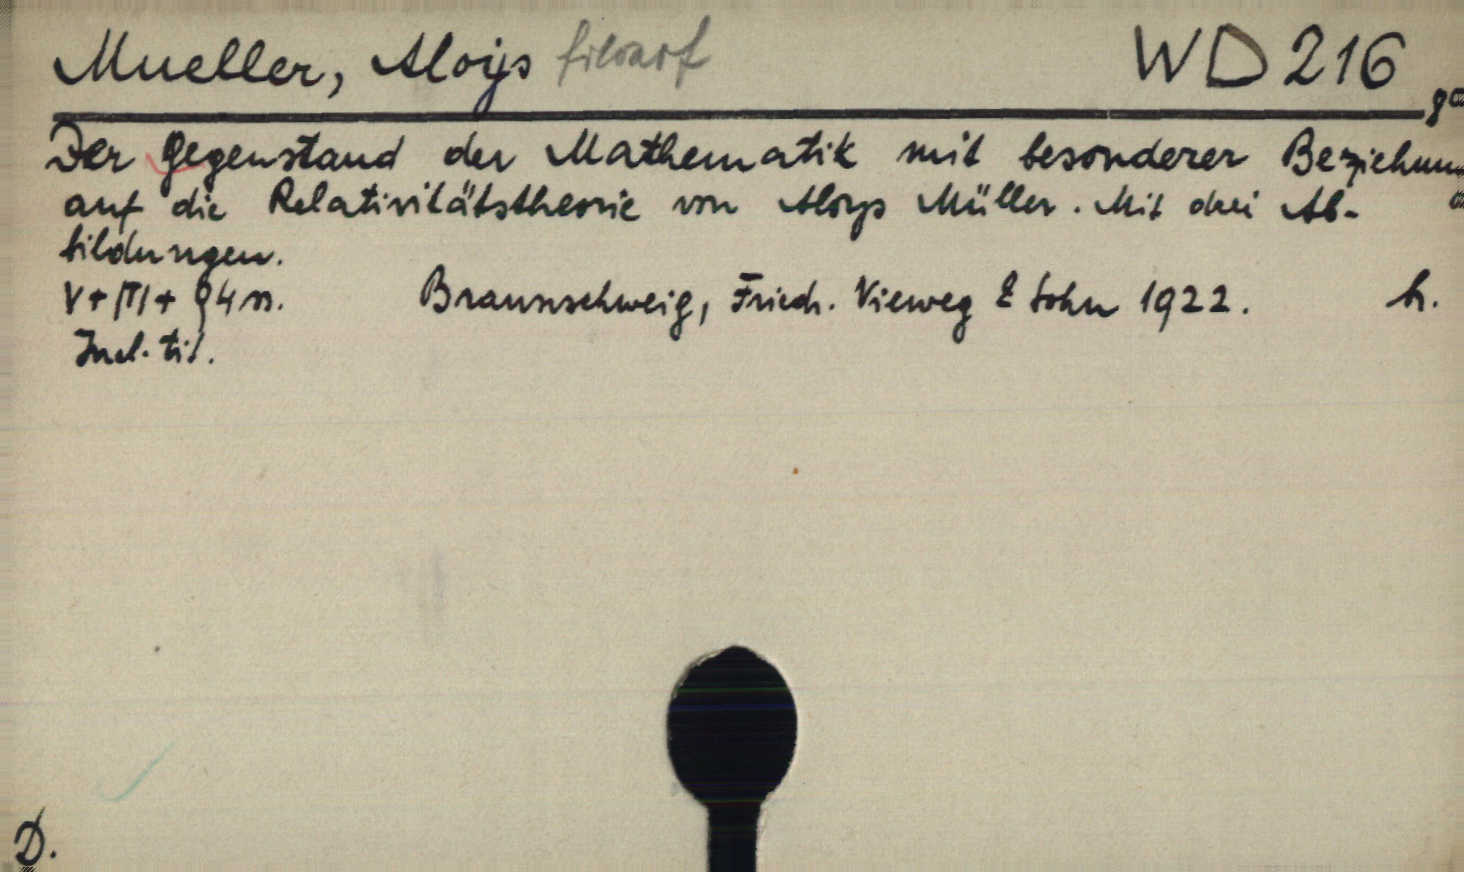 Mueller, Aloys filozof WD 216
8°
Der Gegenstand der Mathematik mit besonderer Beziehun
auf die Relativitätstheorie von Aloys Müller. Mit drei Ab-
bildungen.
V+/1/+ 94 s. Braunschweig, Friedr. Vieweg & Sohn 1922. h.
Incl. tit.
D.